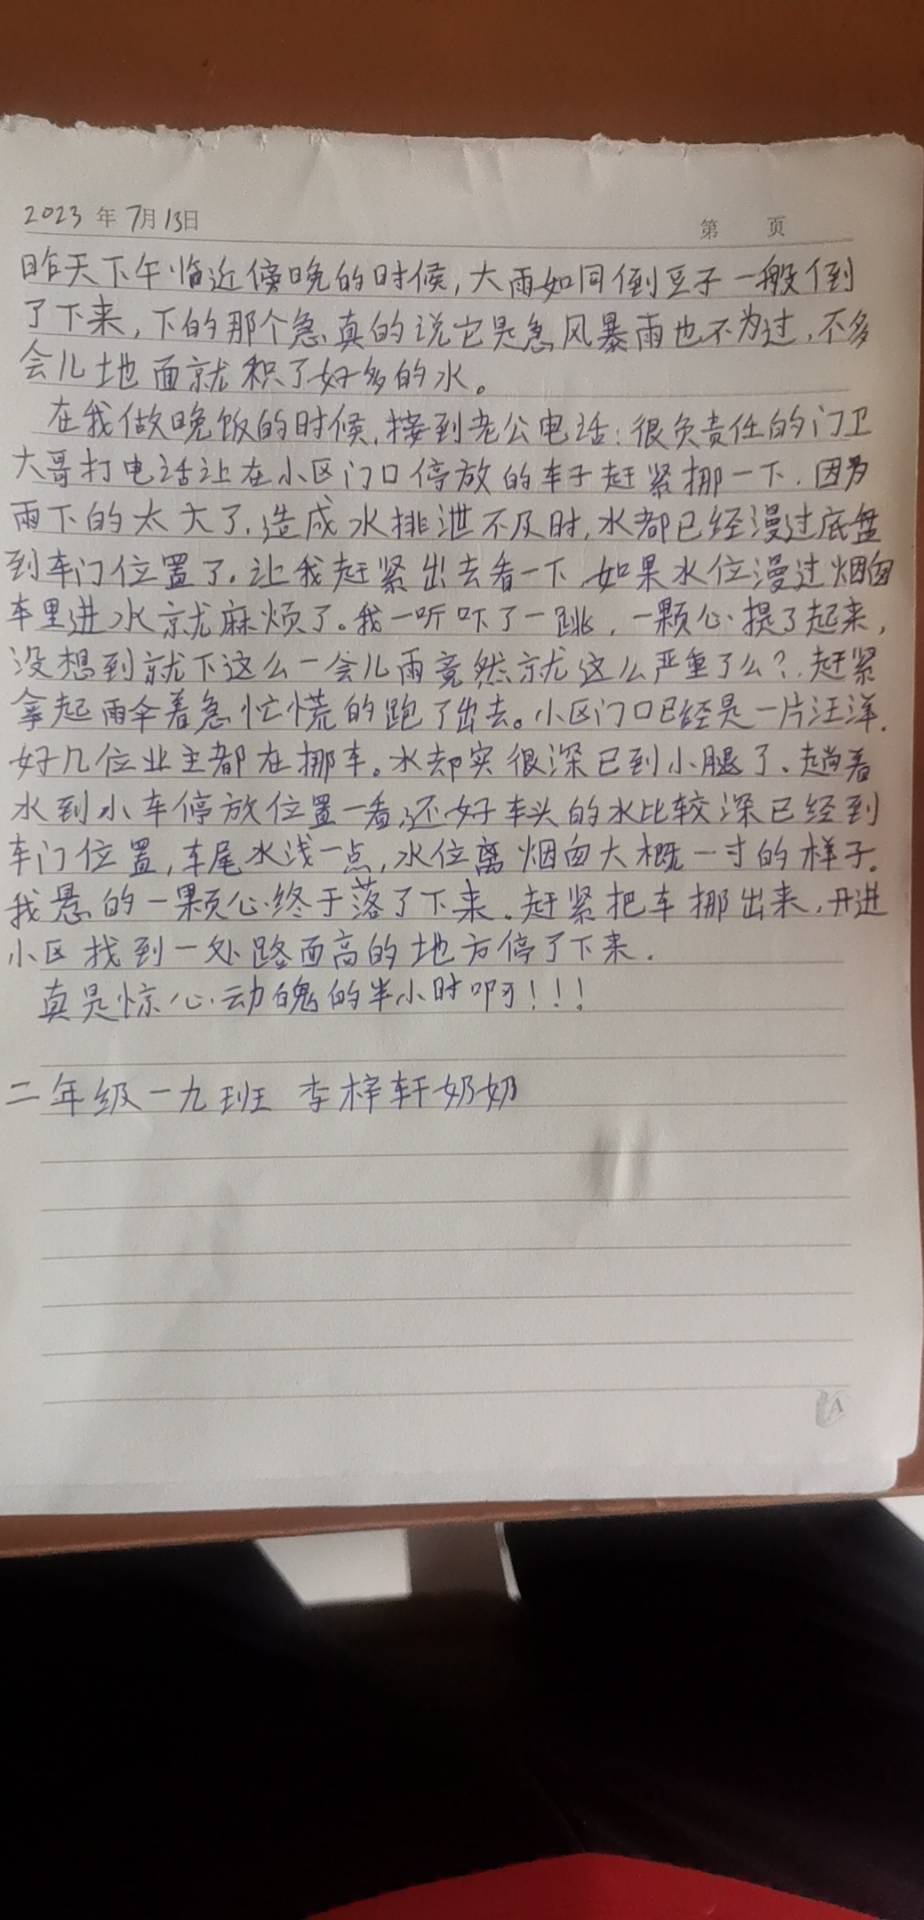 2023年7月13日
第 页
昨天下午临近傍晚的时候,大雨如同倒豆子一般倒
了下来,下的那个急真的说它是急风暴雨也不为过,不多
会儿地面就积了好多的水。
在我做晚饭的时候,接到老公电话:很负责任的门卫
大哥打电话让在小区门口停放的车子赶紧挪一下.因为
雨下的太大了,造成水排泄不及时,水都已经漫过底盘
到车门位置了.让我赶紧出去看一下,如果水位漫过烟囱
车里进水就麻烦了。我一听吓了一跳,一颗心提了起来,
没想到就下这么一会儿雨竟然就这么严重了么?赶紧
拿起雨伞着急忙慌的跑了出去。小区门口已经是一片汪洋.
好几位业主都在挪车。水却实很深已到小腿了、趟着
水到小车停放位置一看,还好车头的水比较深已经到
车门位置,车尾水浅一点,水位离烟囱大概一寸的样子.
我悬的一颗心终于落了下来.赶紧把车挪出来,开进
小区找到一处路面高的地方停了下来.
真是惊心动魄的半小时啊!!!
二年级一九班 李梓轩奶奶
A